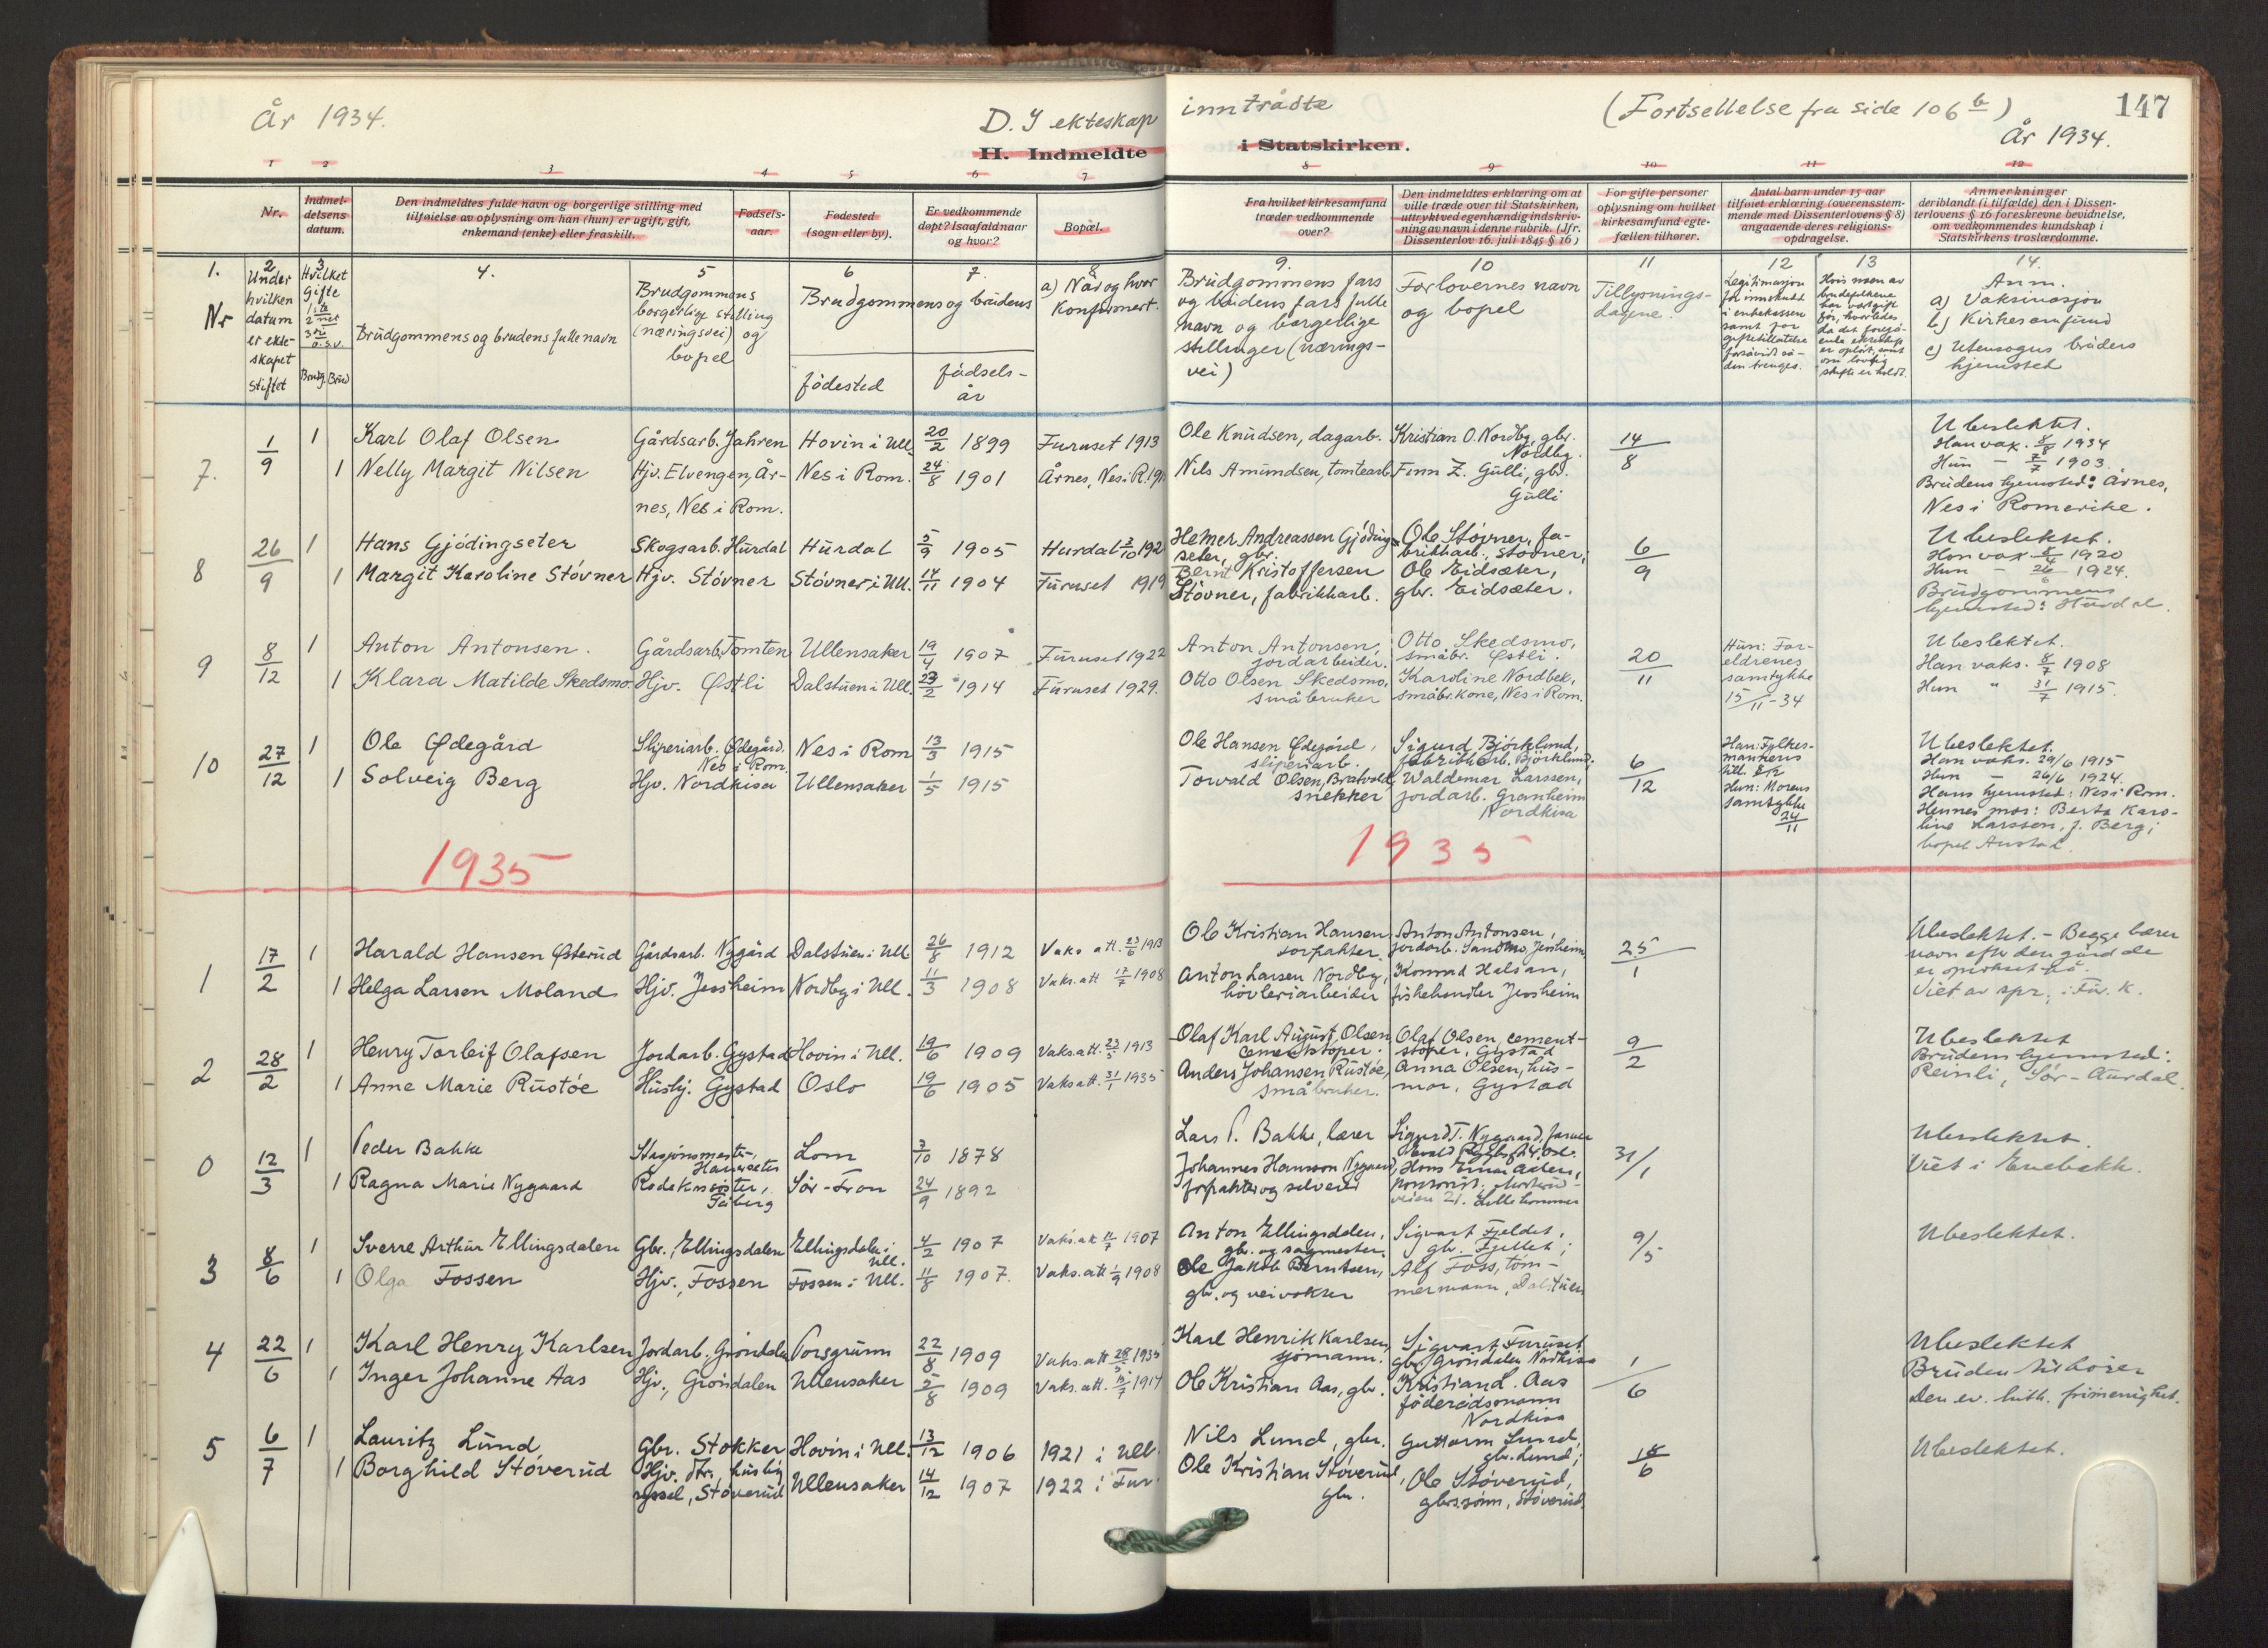 År 1934.
D. I ekteskap inntrådte
(Fortsettelse fra side 106 b)
147
År 1934.
H. Indmeldte i Statskirken.
1 2 3 4 5 6 7 8 9 10 11 12
Nr.
Indmeldelsens datum.
Den indmeldtes fulde navn og borgerlige stilling med
tilføielse av oplysning om han (hun) er ugift, gift,
enkemand (enke) eller fraskilt.
Fødselsaar.
Fødested
(sogn eller by).
Er vedkommende
døpt? Isaafald naar
og hvor?
Bopæl.
Fra hvilket kirkesamfund
træder vedkommende
over?
Den indmeldtes erklæring om at
ville træde over til Statskirken,
uttrykt ved egenhændig indskrivning
av navn i denne rubrik. (Jfr.
Dissenterlov 16. juli 1845 § 16)
For gifte personer
oplysning om hvilket
kirkesamfund egtefællen
tilhører.
Antal barn under 15 aar
tilføiet erklæring (overensstemmende
med Dissenterlovens § 8)
angaaende deres religionsopdragelse.
Anmerkninger
deriblandt (i tilfælde) den i Dissenterlovens
§ 16 foreskrevne bevidnelse,
om vedkommendes kundskap i
Statskirkens troslærdomme.
1. Nr
2 Under hvilken datum er ekteskapet stiftet
3 Hvilket Gifte 1ste 2net 3die o.s.v. Brudg. Brud
4. Brudgommens og brudens fulle navn
5 Brudgommens borgerlige stilling (næringsvei) og bopel
6 7 Brudgommens og brudens
fødested
fødsels-år
8 a) Når og hvor konfirmert.
9. Brudgommens fars og brudens fars fulle navn og borgerlige stillinger (næringsvei)
10 Forlovernes navn og bopel
11 Tillysningsdagene.
12 Legitimasjon for innskudd i enkekassen samt for giftetillatelse forsåvidt sådan trenges.
13
14. Anm.
a) Vaksinasjon
b) Kirkesamfund
c) Utensogns bruders hjemsted
7. 1/9 1 Karl Olaf Olsen Gårdsarb. Jahren Hovin i Ull. 20/2 1899 Furuset 1913 Ole Knudsen, dagarb. Kristian O. Nordby, gbr. Nordby. 14/8 Ubeslektet. Han vax. 8/8 1934
1 Nelly Margit Nilsen Hjv. Elvengen, Årnes, Nes i Rom. Nes i Rom. 24/8 1901 Årnes, Nes i R. Nils Amundsen, tomtearb. Finn Z. Gulli, gbr. Gulli Hun – 7/7 1903. Brudens hjemsted: Årnes, Nes i Romerike.
8 26/9 1 Hans Gjødingseter Skogsarb. Hurdal Hurdal 5/9 1905 Hurdal Hemer Andreassen Gjødingseter, gbr. Ole Støvner, fabrikkarb., Støvner; 6/9 Ubeslektet. Han vax. 1920
1 Margit Karoline Støvner Hjv. Støvner Støvner i Ull. 14/11 1904 Furuset 1919 Bernt Kristoffersen Støvner, fabrikkarb. Ole Eidsæter, gbr. Eidsæter. Hun – 1924. Brudgommens hjemsted: Hurdal.
9 8/12 1 Anton Antonsen. Gårdsarb. Tomten Ullensaker 19/4 1907 Furuset 1922 Anton Antonsen, jordarbeider. Otto Skedsmo, småbr. Østli. 20/11 Hun: Foreldrenes samtykke 15/11-34 Ubeslektet. Han vaks. 8/7 1908
1 Klara Matilde Skedsmo Hjv. Østli Dalstuen i Ull. 23/2 1914 Furuset 1929. Otto Olsen Skedsmo, småbruker Karoline Nordbek, småbr.kone, Nes i Rom. Hun " 31/7 1915.
10 27/12 1 Ole Ødegård Sliperiarb. Ødegård. Nes i Rom. Nes i Rom 13/3 1915 Ole Hansen Ødegård, sliperiarb. Sigurd Bjørklund, fabrikkarb. Bjørklund; 6/12 Han: Fylkesmannens till. Ubeslektet. Han vaks. 29/6 1915
1 Solveig Berg Hjv. Nordkisa Ullensaker 1/5 1915 Torvald Olsen, Bratvold, snekker Waldemar Larssen, jordarb. Granheim Nordkisa Hun: Morens samtykke 24/11 Hun – 26/6 1924. Hans hjemsted: Nes i Rom. Hennes mor: Berta Karoline Larssen, f. Berg; bopel
1935 1935
1 17/2 1 Harald Hansen Østerud Gårdsarb. Nygård Dalstuen i Ull 26/8 1912 Vaks att. 23/6 1913 Ole Kristian Hansen forpakter. Anton Antonsen, jordarb. Sandmo, Jessheim 25/1 Ubeslektet. – Begge bærer navn efter den gård de er opvokset på.
1 Helga Larsen Moland Hjv. Jessheim Nordby i Ull. 11/3 1908 Vaks. att 17/7 1908 Anton Larsen Nordby, høvleriarbeider Konrad Halsan, fiskehandler Jessheim Viet av spr. i Fur. K.
2 28/2 1 Henry Torleif Olafsen Jordarb. Gystad Hovin i Ull. 19/6 1909 Vaks. att. 23/5 1913 Olaf Karl August Olsen, cementstøper. Olaf Olsen, cementstøper, Gystad 9/2 Ubeslektet
1 Anne Marie Rustøe Hushj. Gystad Oslo 19/6 1905 Vaks att. 31/1 1935 Anders Johansen Rustøe, småbruker. Anna Olsen, husmor, Gystad Brudens hjemsted: Reinli, Sør-Aurdal.
0 12/3 1 Peder Bakke Stasjonsmester, Lom 7/10 1878 Lars P. Bakke, lærer Sigurd T. Nygaard, 31/1 Ubeslektet.
1 Ragna Marie Nygaard Sør-Fron 24/9 1892 Johannes Hansson Nygaard, forpakter og selveier Hans Einar Aalen, Lillehammer Viet i Enebakk.
3 8/6 1 Sverre Arthur Ellingsdalen Gbr., Ellingsdalen Ellingsdalen i Ull. 4/2 1907 Vaks. att 1907 Anton Ellingsdalen, gbr. og sagmester. Sigvart Fjeldet, gbr. Fjellet; 9/5 Ubeslektet.
1 Olga Fossen Hjv., Fossen Fossen i Ull. 11/8 1907. Vaks. att 1/9 1908 Ole Jakob Berntsen, gbr. og veivokter Alf Foss, tømmermann, Dalstuen
4 22/6 1 Karl Henry Karlsen Jordarb. Grøndalen Porsgrunn 22/8 1909 Vaks. att 28/5 1935 Karl Henrik Karlsen, sjømann. Sigvart Furuset gbr. Grøndalen Nordkisa 1/6 Ubeslektet
1 Inger Johanne Aas Hjv., Grøndalen Ullensaker 5/8 1909 Vaks. att. 1914 Ole Kristian Aas, gbr. Kristian L. Aas føderådsmann Nordkisa Bruden tilhører Den ev. luth. frimenighet.
5 6/7 1 Lauritz Lund Gbr. Stokker Hovin i Ull. 13/12 1906 1921 i Ull. Nils Lund, gbr. Guttorm Lund, gbr. Lund; 18/6 Ubeslektet.
1 Borghild Støverud Hjv. dtr., huslig syssel, Støverud Ullensaker 14/12 1907 1922 i Fur. Ole Kristian Støverud, gbr. Ole Støverud, gbrs.sønn, Støverud